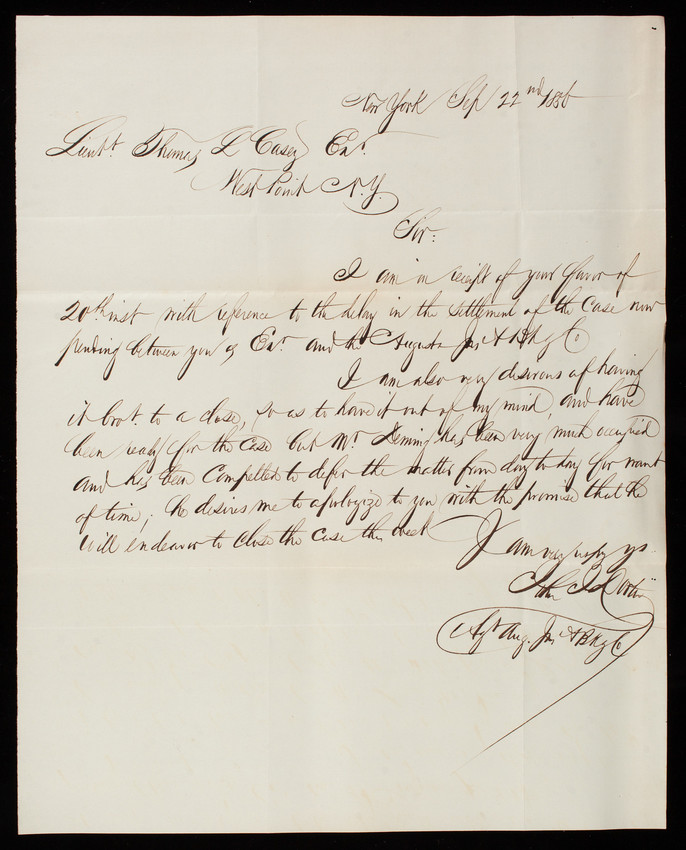 New York Sep 22nd 1856
Lieut. Thomas L Casey Exr.
West Point N.Y.
Sir:
I am in receipt of your favor of
20th inst with reference to the delay in the settlement of the Case now
pending between you as Exr and the Augusta Ins & Bkg Co
I am also very desirous of having
it brot. to a close, so as to have it out of my mind, and have
been ready for the case but Mr. Deming has been very much occupied
and has been Compelled to defer the matter from day to day for want
of time; he desires me to apologize to you with the promise that he
will endeavor to close the case this week
I am very respy ys.
John J
Agt Aug. Ins & Bkg Co